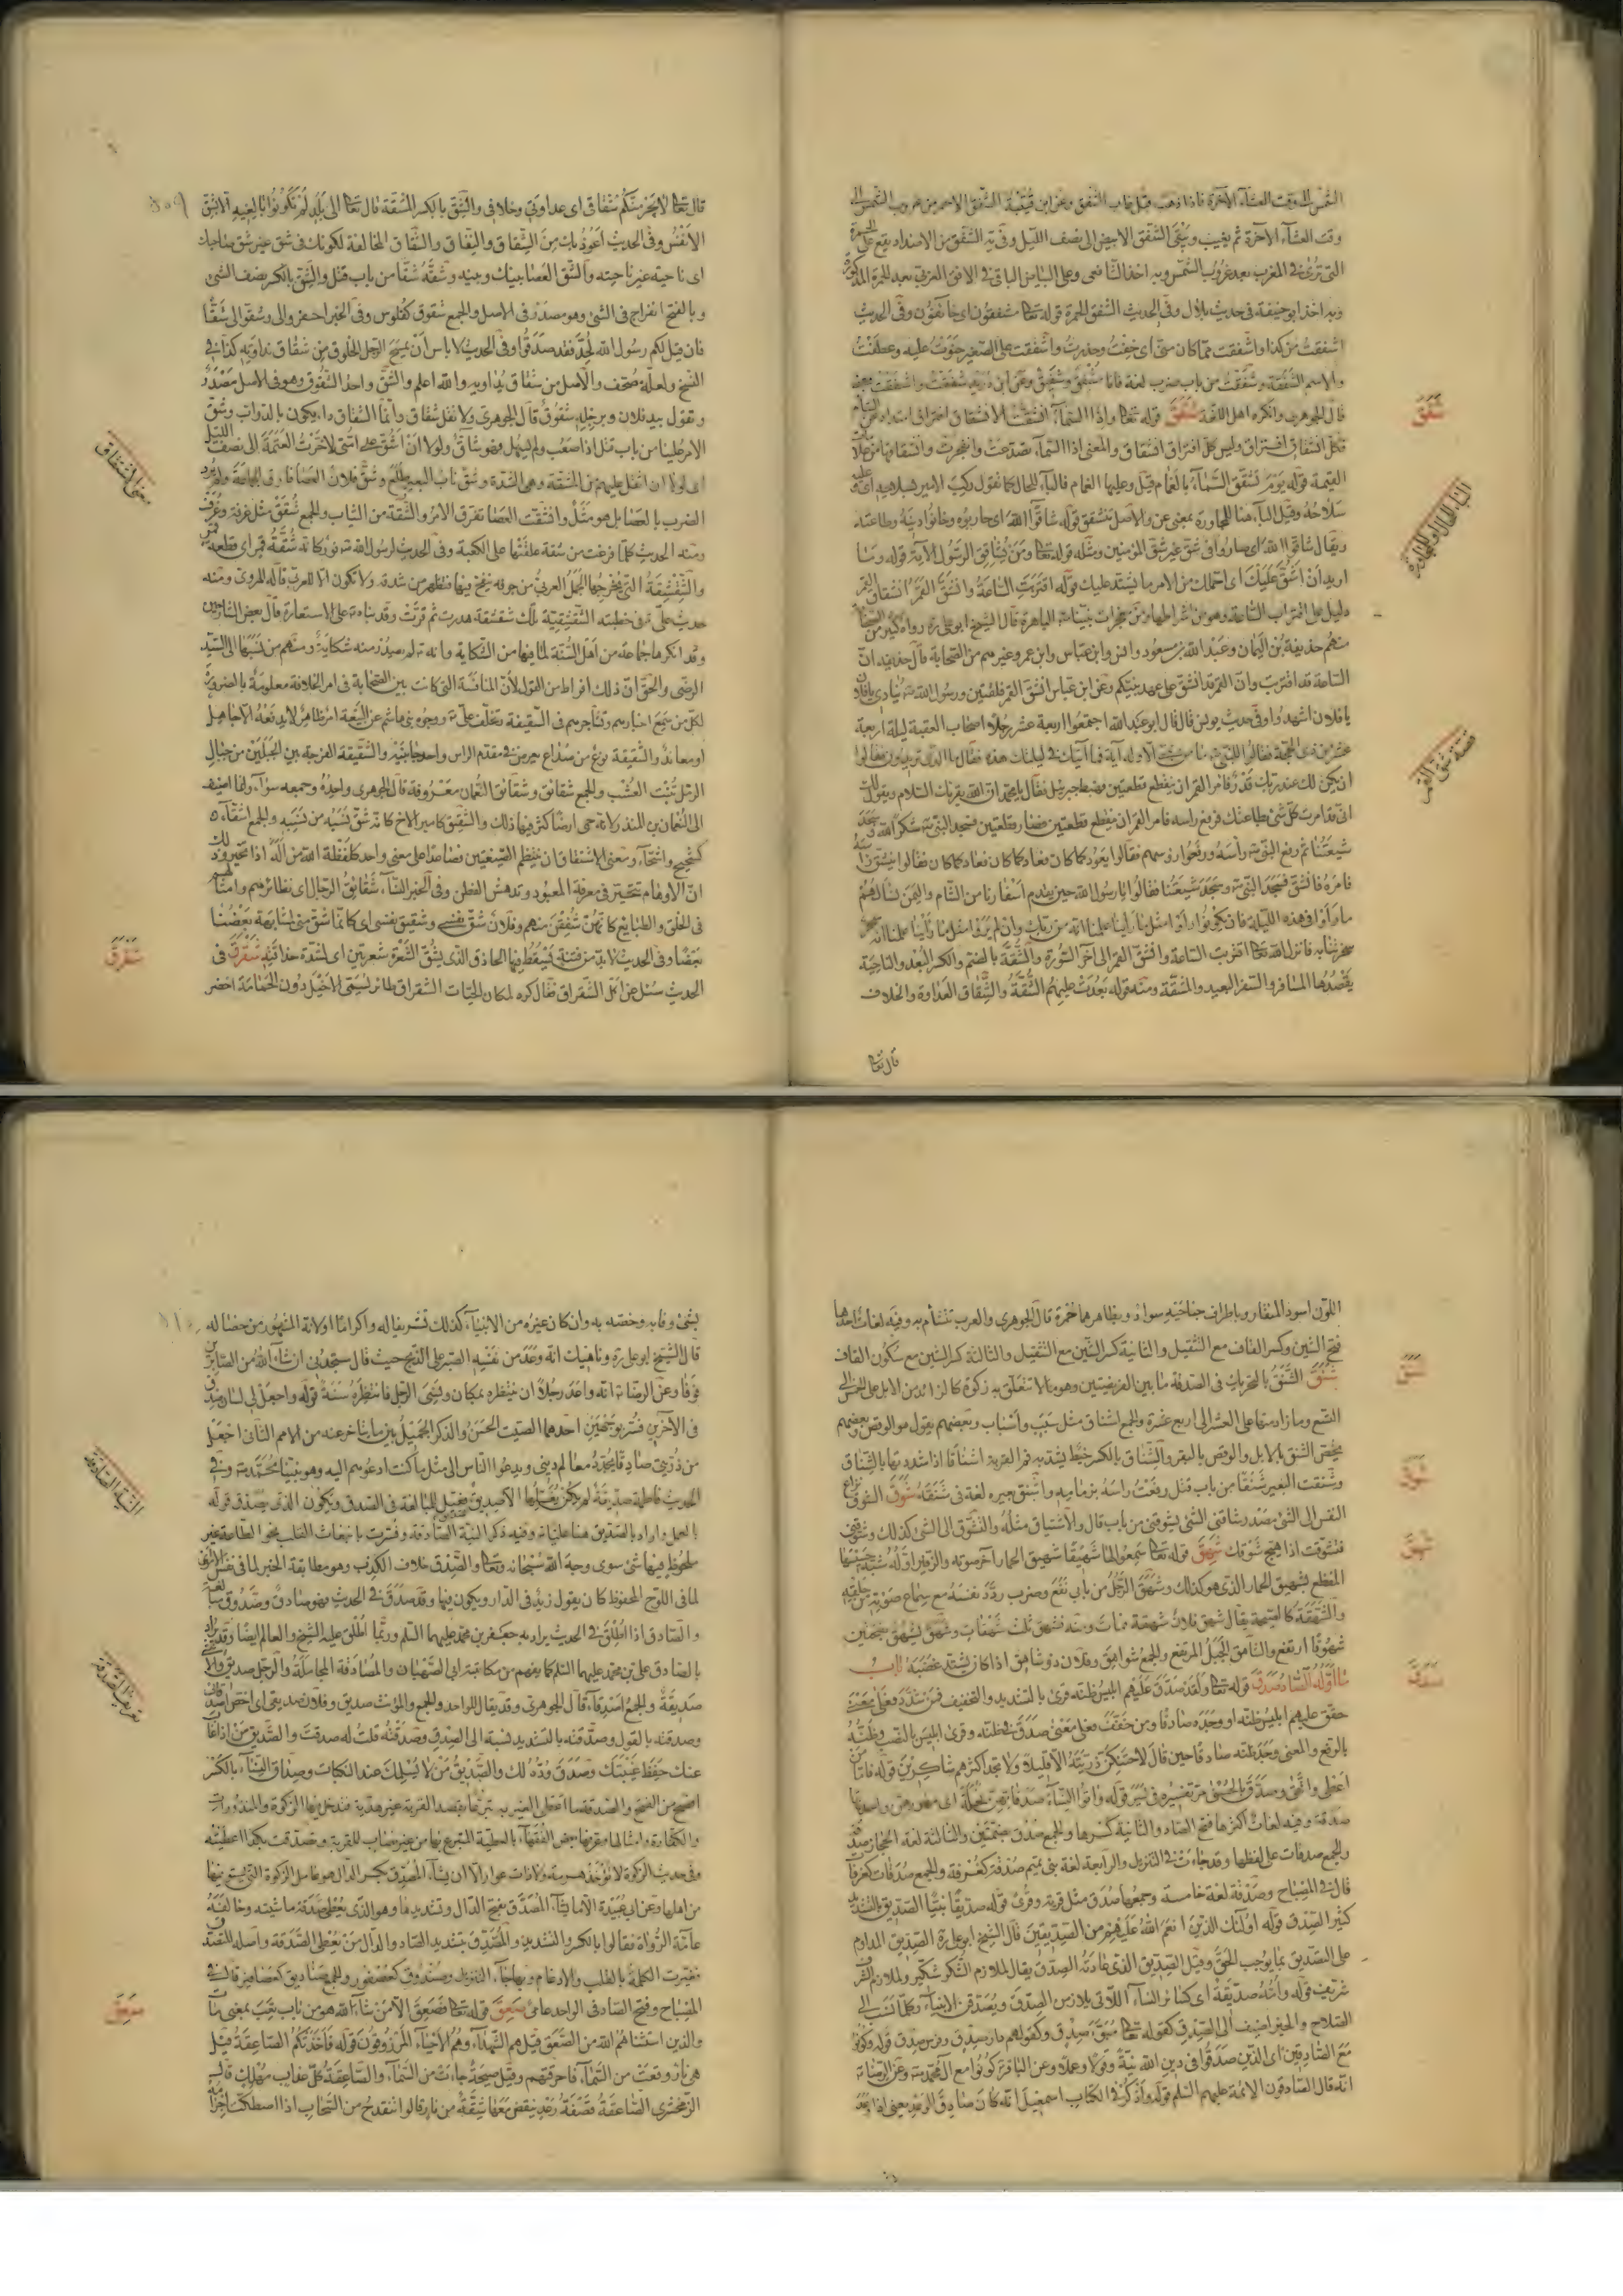 الشمس الى وقت العشاء الآخرة فاذا ذهب قيل غاب الشفق وعن ابن قتيبة الشفق الاحمر من غروب الشمس الى
وقت العشاء الآخرة ثم يغيب ويبقى الشفق الابيض الى نصف الليل وفي يه الشفق من الاضداد يقع على الحمرة
التي ترى في المغرب بعد غروب الشمس وبه اخذ الشافعي وعلى البياض الباقي في الافق الغربي بعد الحمرة المذكورة
وبه اخذ ابو حنيفة في حديث بلال وفي الحديث الشفق الحمرة قوله تعا مشفقون اى خائفون وفي الحديث
اشفقت من كذا واشفقت مما كان منى اى خفت وحذرت واشفقت على الصغير حنوت عليه وعطفت
والاسم الشفقة وشفقت من باب ضرب لغة فانا مشفق وشفيق وعن ابن دريد شفقت واشفقت بمعنى
قال الجوهرى وانكره اهل اللغة شقق قوله تعا واذا السماء انشقت الانشقاق افتراق امتداد عن التيام
فكل انشقاق افتراق وليس كل افتراق انشقاق والمعنى اذا السماء تصدعت وانفجرت وانشقاقها من علامات
القيمة قوله يوم تشقق السماء بالغمام قيل وعليها الغمام فالباء للحال كما تقول ركب الامير بسلاحه اى وعليه
سلاحه وقيل الباء هنا للمجاورة بمعنى عن والاصل تتشقق قوله شاقوا الله اى حاربوه وخانوا دينه وطاعته
ويقال شاقوا الله اى صاروا في شق غير شق المؤمنين ومثله قوله تعا ومن يشاقق الرسول الآية قوله وما
اريد ان اشق عليك اى احملك من الامر ما يشتد عليك قوله اقتربت الساعة وانشق القمر انشقاق القمر
دليل على اقتراب الساعة وهو من اشراطها ومن معجزات نبينا ص الباهرة قال الشيخ ابو على ره رواه كثير من الصحابة
منهم حذيفة بن اليمان وعبد الله بن مسعود وانس وابن عباس وابن عمر وغيرهم من الصحابة قال حذيفة ان
الساعة قد اقتربت وان القمر قد انشق على عهد نبيكم وعن ابن عباس انشق القمر فلقتين ورسول الله ص ينادى يا فلان
يا فلان اشهدوا وفي حديث يونس قال قال ابو عبد الله اجتمعوا اربعة عشر رجلا اصحاب العقبة ليلة اربعة
عشر من ذى الحجة فقالوا للنبى ص ما من نبى الا وله آية فما آيتك في ليلتك هذه فقال ما الذى تريدون فقالوا
ان يكن لك عند ربك قدر فامر القمر ان ينقطع قطعتين فهبط جبرئيل فقال يا محمد ان الله يقرئك السلام ويقول لك
انى قد امرت كل شئ بطاعتك فرفع راسه فامر القمر ان ينقطع قطعتين فصار قطعتين فسجد النبى ص شكرا لله وسجد
شيعتنا ثم رفع النبى ص رأسه ورفعوا رؤسهم فقالوا يعود كما كان فعاد كما كان فقالوا ينشق
فامره فانشق فسجد النبى ص وسجد شيعتنا فقالوا يا رسول الله حين يقدم اسفارنا من الشام واليمن نسألهم
ما رأوا في هذه الليلة فان يكونوا رأوا مثل ما رأينا علمنا انه من ربك وان لم يروا مثل ما رأينا علمنا انه سحر
سحرتنا به فانزل الله تعا اقتربت الساعة وانشق القمر الى آخر السورة والشقة بالضم والكسر البعد والناحية
يقصدها المسافر والسفر البعيد والمشقة ومنه قوله بعدت عليهم الشقة والشقاق العداوة والخلاف
قال تعا
شقق
الباء للحال والمجاورة
قصة شق القمر
قال تعا لا يجرمنكم شقاقى اى عداوتى وخلافى والشق بالكسر المشقة قال تعا الى بلد لم تكونوا بالغيه الا بشق
الانفس وفي الحديث اعوذ بك من الشقاق والنفاق والشقاق المخالفة لكونك في شق غير شق صاحبك
اى ناحيته غير ناحيته والشق العصا بينك وبينه وشقه شقا من باب قتل والشق بالكسر نصف الشئ
وبالفتح انفراج في الشئ وهو مصدر في الاصل والجمع شقوق كفلوس وفي الخبر احفروا لى وشقوا لى شقا
فان قيل لكم رسول الله لحد فقد صدقوا وفي الحديث لا باس ان يمسح الرجل الخلوق من شقاق يداويه كذا في
النسخ ولعله مصحف والاصل من شقاق يداويه والله اعلم والشق واحد الشقوق وهو في الاصل مصدر
وتقول بيد فلان وبرجله شقوق قال الجوهرى ولا تقل شقاق وانما الشقاق داء يكون بالدواب وشق
الامر علينا من باب قتل اذا صعب ولم يسهل فهو شاق ولولا ان اشق على امتى لاخرت العتمة الى نصف الليل
اى لولا ان اثقل عليهم من المشقة وهي الشدة وشق ناب البعير طلع وشق فلان العصا فارق الجماعة
الضرب بالعصا بل هو مثل وانشقت العصا تفرق الامر والشقة من الثياب والجمع شقق مثل غرفة وغرف
ومنه الحديث كلما فرغت من شقة علقتها على الكعبة وفي الحديث لرسول الله ص نور كانه شقة قمر اى قطعة قمر
والشقشقة التى يخرجها الجمل العربى من جوفه ينفخ فيها فتظهر من شدقه ولا تكون الا للعربى قاله الهروى ومنه
حديث على ع في خطبته الشقشقية تلك شقشقة هدرت ثم قرت وقد بناه على الاستعارة قال بعض الشارحين
وقد انكرها جماعة من اهل السنة لما فيها من الشكاية وانه ع لم يصدر منه شكاية ومنهم من نسبها الى السيد
الرضى والحق ان ذلك افراط من القول لأن المنافسة التى كانت بين الصحابة في امر الخلافة معلومة بالضرورة
لكل من سمع اخبارهم وتشاجرهم في السقيفة وتخلف على ع ووجوه بنى هاشم عن البيعة امر ظاهر لا يدفعه الا جاهل
او معاند والشقيقة نوع من صداع يعرض في مقدم الراس واحد جانبيه والشقيقة الفرجة بين الجبلين من جبال
الرمل تنبت العشب والجمع شقائق وشقائق النعمان معروفة قال الجوهرى واحده وجمعه سواء وانما اضيف
الى النعمان بن المنذر لانه حمى ارضا كثر فيها ذلك والشقيق كامير الاخ كانه شق نسبه من نسبه والجمع اشقاء
كشحيح واشحاء ومعنى الاشتقاق ان ينتظم الصيغتين فصاعدا على معنى واحد كلفظة الله من اله اذا تحير وذلك
ان الاوهام تتحير في معرفة المعبود وتدهش الفطن وفي الخبر النساء شقائق الرجال اى نظائرهم وامثالهم
في الخلق والطبايع كانهن شققن منهم وفلان شق نفسى وشقيق نفسى اى كانما شق منى لمشابهة بعضنا
بعضا وفي الحديث لا بد من فتنة يسقط فيها الحاذق الذى يشق الشعرة شعرتين اى لشدة حذاقته شقرق في
الحديث سئل عن اكل الشقراق فقال كره لمكان الحيات الشقراق طائر يسمى الاخيل دون الحمامة اخضر
معنى اشتقاق
شقرق
اللون اسود المنقار وباطراف جناحيه سواد وبظاهرهما حمرة قال الجوهرى والعرب تتشأم به وفيه لغات احدها
فتح الشين وكسر القاف مع الثقيل والثانية كسر الشين مع الثقيل والثالثة كسر الشين مع سكون القاف
شنق الشنق بالتحريك في الصدقة ما بين الفريضتين وهو ما لا تتعلق به زكوة كالزائد من الابل على الخمس الى
التسع وما زاد منها على العشر الى اربع عشرة والجمع اشناق مثل سبب واسباب وبعضهم يقول هو الوقص وبعضهم
يخص الشنق بالابل والوقص بالبقر والشناق بالكسر خيط يشد به فم القربة اشناقا اذا شددتها بالشناق
وشنقت البعير شنقا من باب قتل رفعت رأسه بزمامه واشنق بعيره لغة في شنقه شوق الشوق نزاع
النفس الى الشئ مصدر شاقنى الشئ يشوقنى من باب قال والاشتياق مثله والتشوق الى الشئ كذلك وشوقنى
فتشوقت اذا هيج شوقك شهق قوله تعا سمعوا لها شهيقا شهيق الحمار آخر صوته والزفير اوله شبه حسيسها
المفظع بشهيق الحمار الذى هو كذلك وشهق الرجل من بابى نفع وضرب ردد نفسه مع سماع صوته من حلقه
والشهقة كالصيحة يقال شهق فلان شهقة فمات ومنه فشهق ثلث شهقات وشهق يشهق بفتحتين
شهوقا ارتفع والشاهق الجبل المرتفع والجمع شواهق وفلان ذو شاهق اذا كان يشتد غضبه باب
ما اوله الصاد صدق قوله تعا ولقد صدق عليهم ابليس ظنه قرئ بالتشديد والتخفيف فمن شدد فعلى معنى
حقق عليهم ابليس ظنه او وجده صادقا ومن خفف فعلى معنى صدق في ظنه وقرئ ابليس بالنصب وظنه
بالرفع والمعنى وجد ظنه صادقا حين قال لاحتنكن ذريته الا قليلا ولا تجد اكثرهم شاكرين قوله فاما من
اعطى واتقى وصدق بالحسنى مر تفسيره في يسر قوله وآتوا النساء صدقاتهن نحلة اى مهورهن واحدتها
صدقة وفيه لغات اكثرها فتح الصاد والثانية كسرها والجمع صدق بضمتين والثالثة لغة الحجاز صدقة
والجمع صدقات على لفظها وقد جاءت في التنزيل والرابعة لغة بنى تميم صدقة كغرفة والجمع صدقات كغرفات
قال في المصباح وصدقة لغة خامسة وجمعها صدق مثل قرية وقرى قوله صديقا نبيا الصديق بالتشديد
كثير الصدق قوله اولئك الذين انعم الله عليهم من الصديقين قال الشيخ ابو على ره الصديق المداوم
على التصديق بما يوجب الحق وقيل الصديق الذى عادته الصدق يقال لملازم الشكر شكير ولملازم الشرب
شريب قوله وامه صديقة اى كسائر النساء اللاتى يلازمن الصدق ويصدقن الانبياء وكلما نسب الى
الصلاح والخير اضيف الى الصدق كقوله تعا مبوء صدق وكقولهم دار صدق وفرس صدق قوله وكونوا
مع الصادقين اى الذين صدقوا في دين الله نية وقولا وعملا وعن الباقر ع كونوا مع آل محمد ص وعن الرضا ع
انه قال الصادقون الائمة عليهم السلم قوله واذكر في الكتاب اسمعيل انه كان صادق الوعد يعنى اذا وعد
شنق
شوق
شهق
صدق
بشئ وفا به وخصه به وان كان غيره من الانبياء كذلك تشريفا له واكراما اولانه المشهور من خصاله
قال الشيخ ابو على ره وناهيك انه وعد من نفسه الصبر على الذبح حيث قال ستجدنى ان شاء الله من الصابرين
فوفا وعن الرضا ع انه واعد رجلا ان ينتظره بمكان ونسى الرجل فانتظره سنة قوله واجعل لى لسان صدق
في الآخرين فسر بوجهين احدهما الصيت الحسن والذكر الجميل بين ما يتاخر عنه من الامم الثانى اجعل
من ذريتى صادقا يجدد معالم دينى ويدعوا الناس الى مثل ما كنت ادعوهم اليه وهو نبينا محمد ص وفي
الحديث فاطمة صديقة لم يكن يغسلها الا صديق فعيل للمبالغة في الصدق ويكون الذى يصدق قوله
بالعمل واراد بالصديق هنا عليا ع وفيه ذكر النية الصادقة وفسرت بانبعاث القلب نحو الطاعة غير
ملحوظ فيها شئ سوى وجه الله سبحانه وتعا والصدق خلاف الكذب وهو مطابقة الخبر لما في نفس الامر
لما في اللوح المحفوظ كان يقول زيد في الدار ويكون فيها وقد صدق في الحديث فهو صادق وصدوق مبالغة
والصادق اذا اطلق في الحديث يراد به جعفر بن محمد عليهما السلم وربما اطلق عليه الشيخ والعالم ايضا وقد يراد
بالصادق على بن محمد عليهما السلم كما يفهم من مكاتبة ابى الصهبان والمصادقة المجاملة والرجل صديق والانثى
صديقة والجمع اصدقاء قال الجوهرى وقد يقال للواحد والجمع والمؤنث صديق وفلان صديقى اى اخص اصدقائى
وصدقته بالقول وصدقته بالتشديد نسبته الى الصدق وصدقته قلت له صدقت والصديق من اذا غاب
عنك حفظ غيبتك وصدق وده لك والصديق من لا يسلمك عند النكبات وصداق النساء بالكسر
افصح من الفتح والصدقة ما اعطى الغير به تبرعا بقصد القربة غير هدية فتدخل فيها الزكوة والمنذورات
والكفارة وامثالها وعرفها بعض الفقهاء بالعطية المتبرع بها من غير نصاب للقربة وتصدقت بكذا اعطيته
وفي حديث الزكوة لا تؤخذ هرمة ولا ذات عوار الا ان يشاء المصدق بكسر الدال هو عامل الزكوة التى يستوفيها
من اهلها وعن ابى عبيدة الا ما يشاء المصدق بفتح الدال وتشديدها وهو الذى يعطى صدقة ماشيته وخالفه
عامة الرواة فقالوا بالكسر والتشديد والمصدق بتشديد الصاد والدال من يعطى الصدقة واصله المتصدق
فغيرت الكلمة بالقلب والادغام وبها جاء التنزيل وصندوق كعصفور والجمع صناديق كعصافير قال في
المصباح وفتح الصاد في الواحد عامى صعق قوله تعا فصعق الا من شاء الله هو من باب تعب بمعنى مات
والذين استثناهم الله من الصعق قيل هم الشهداء وهم الاحياء المرزوقون قوله فاخذتكم الصاعقة قيل
هى نار وقعت من السماء فاحرقتهم وقيل صيحة جاءت من السماء والصاعقة كل عذاب مهلك قال
الزمخشرى الصاعقة قصفة رعد ينقض معها شقة من نار قالوا تنقدح من السحاب اذا اصطكت اجرامه
النية الصادقة
تعريف الصدقة
صعق